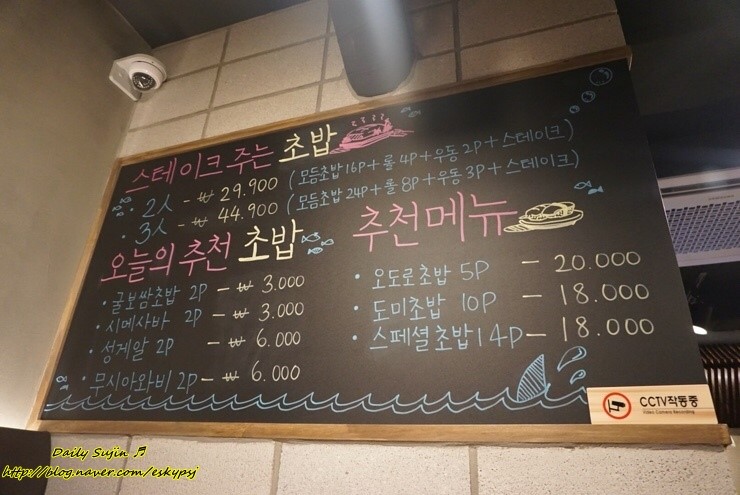 스테이크 주는 초밥
· 2人 - ₩ 29.900 (모듬초밥 16P + 롤 4P + 우동 2P + 스테이크)
· 3人 - ₩ 44.900 (모듬초밥 24P + 롤 8P + 우동 3P + 스테이크)
오늘의 추천 초밥
· 굴보쌈초밥 2P - ₩ 3.000
· 시메사바 2P - ₩ 3.000
· 성게알 2P - ₩ 6.000
· 무시아와비 2P - ₩ 6.000
추천메뉴
· 오도로초밥 5P - 20.000
· 도미초밥 10P - 18.000
· 스페셜초밥 14P - 18.000
CCTV작동중
Video Camera Recording
Daily Sujin ♬
http://blog.naver.com/eskypsj